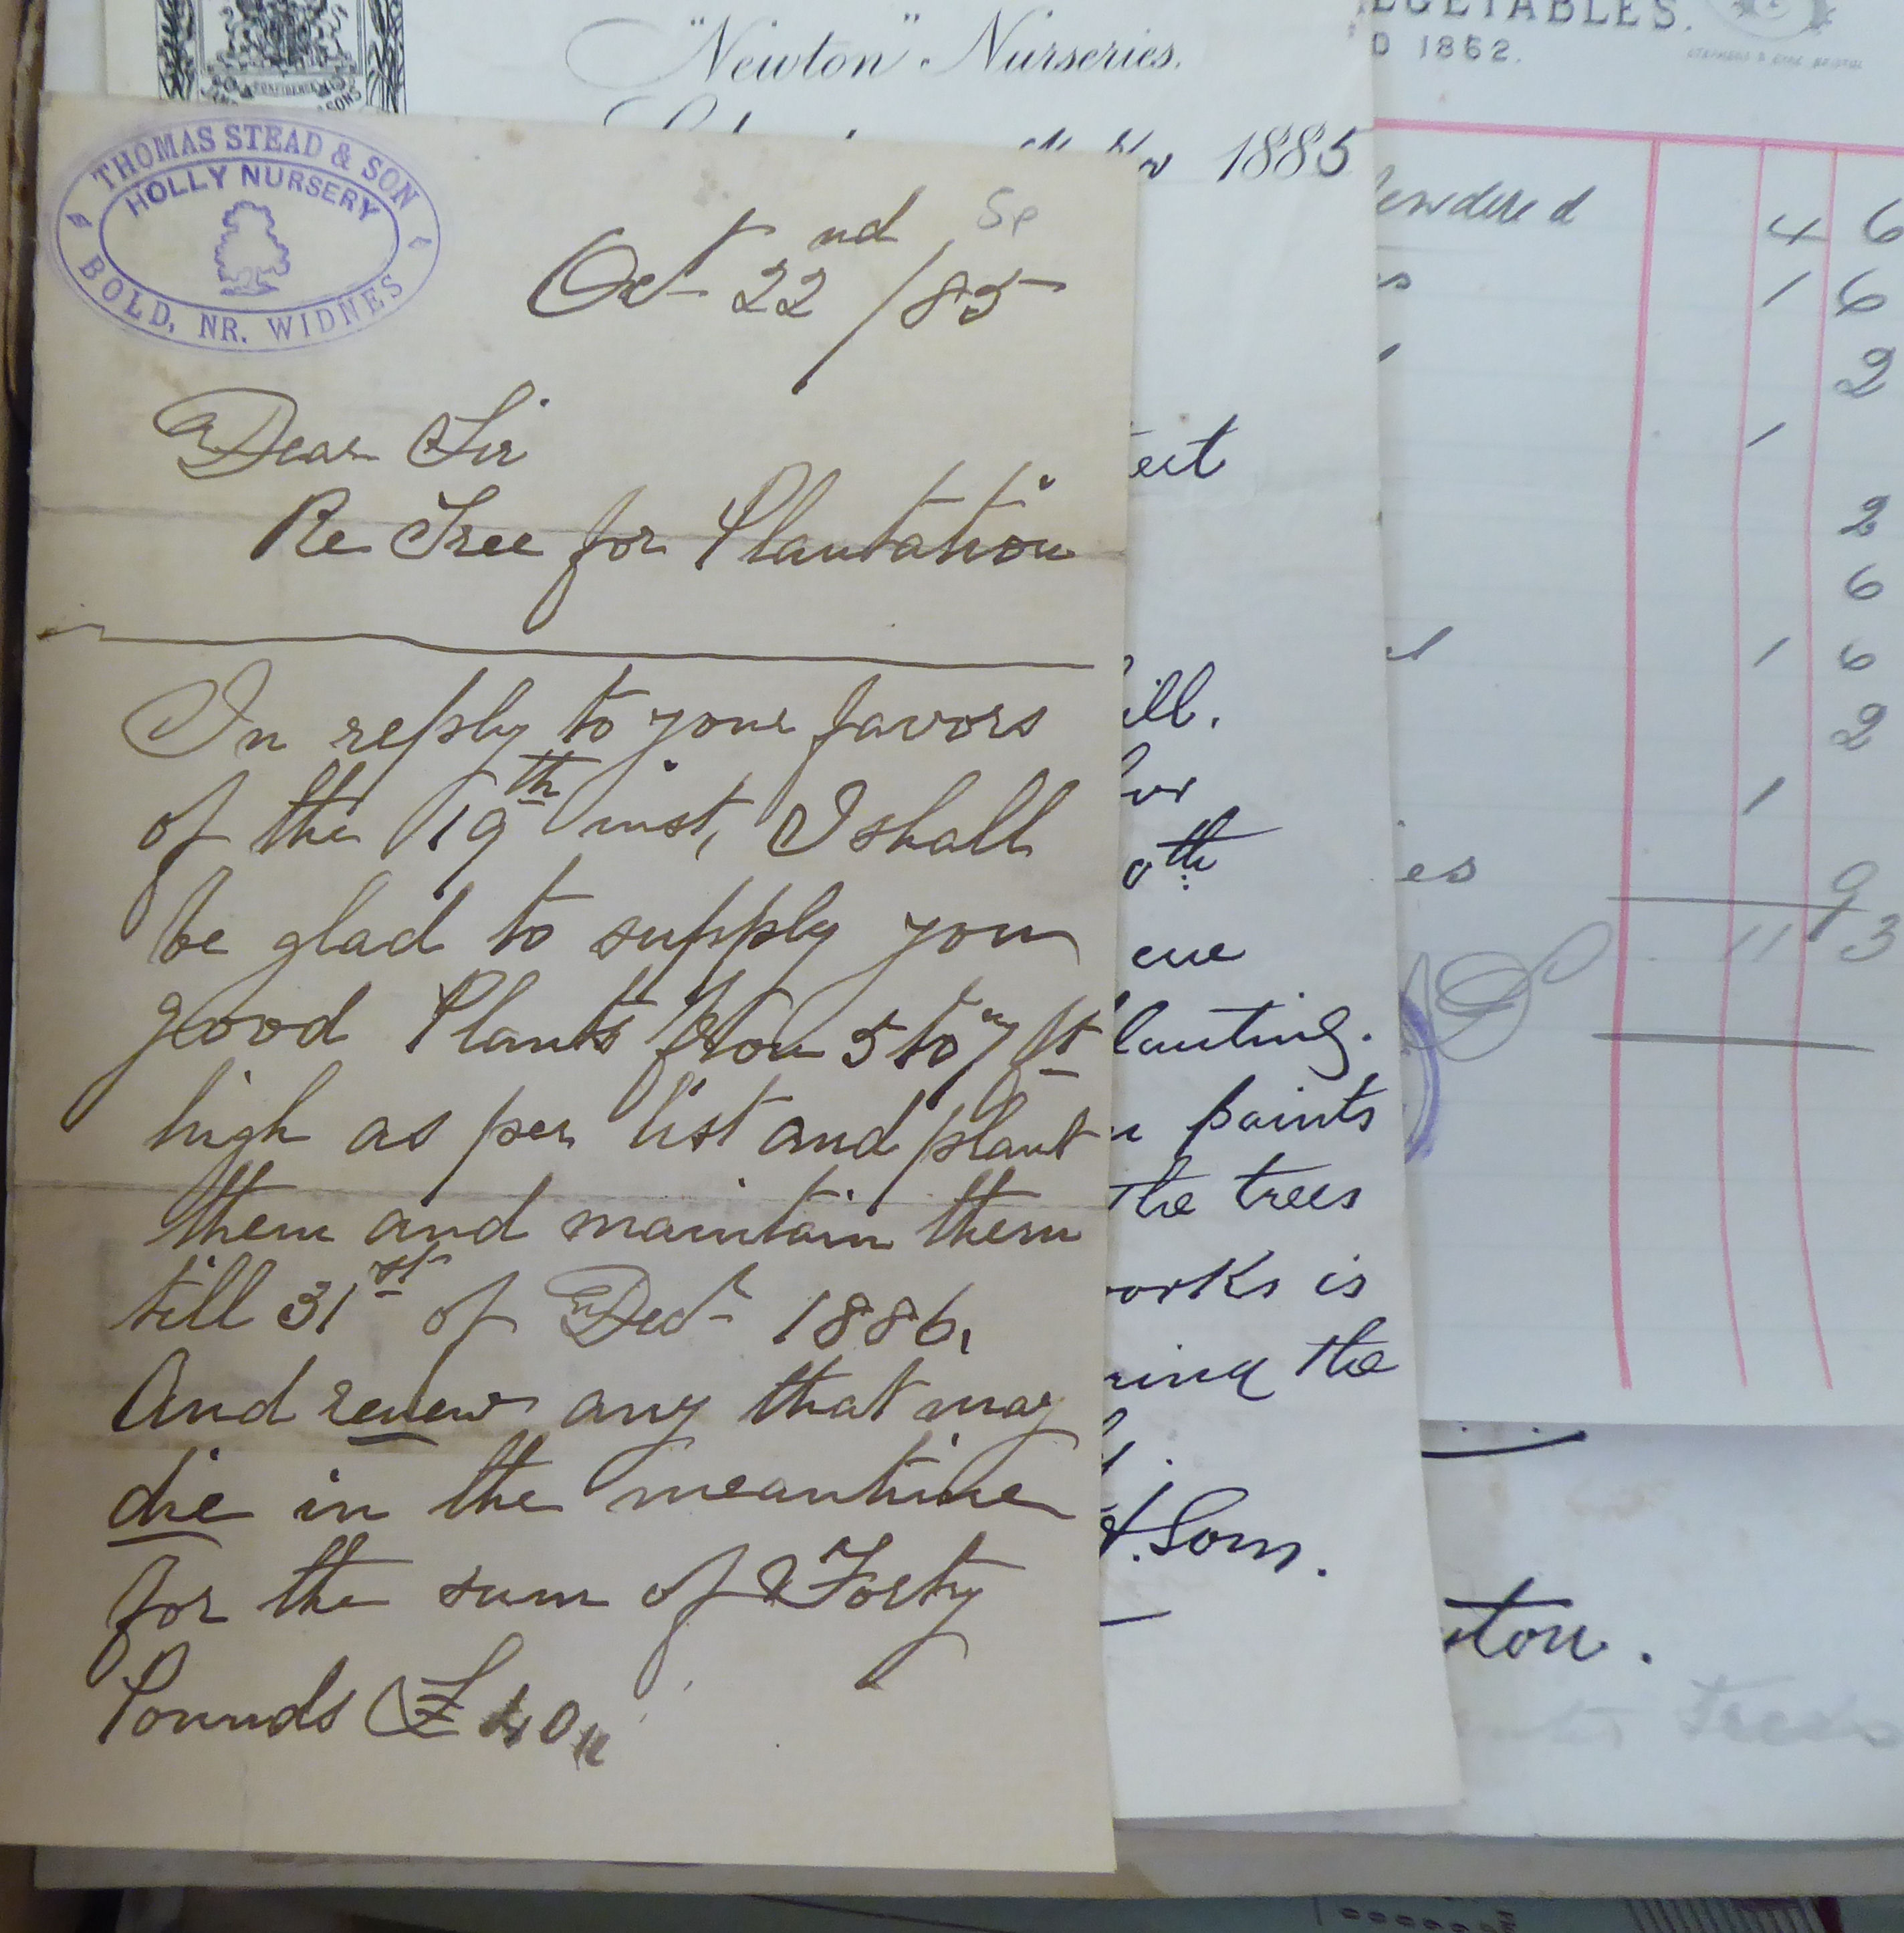 THOMAS STEAD & SON
HOLLY NURSERY
BOLD, NR. WIDNES
Oct 22nd /85
Dear Sir
Re Tree for Plantation
In reply to your favors
of the 19th inst, I shall
be glad to supply you
good Plants from 5 to 7 ft
high as per list and plant
them and maintain them
till 31st of Decr 1886,
And renew any that may
die in the meantime
for the sum of Forty
Pounds £40
"Newton" Nurseries.
1885
ill.
oth
lanting.
paints
The trees
orks is
ring the
Sons.
EGETABLES.
D 1862.
4 6
1 6
2
1
2
6
1 6
2
1
es 9
11 3
ton.
Trees